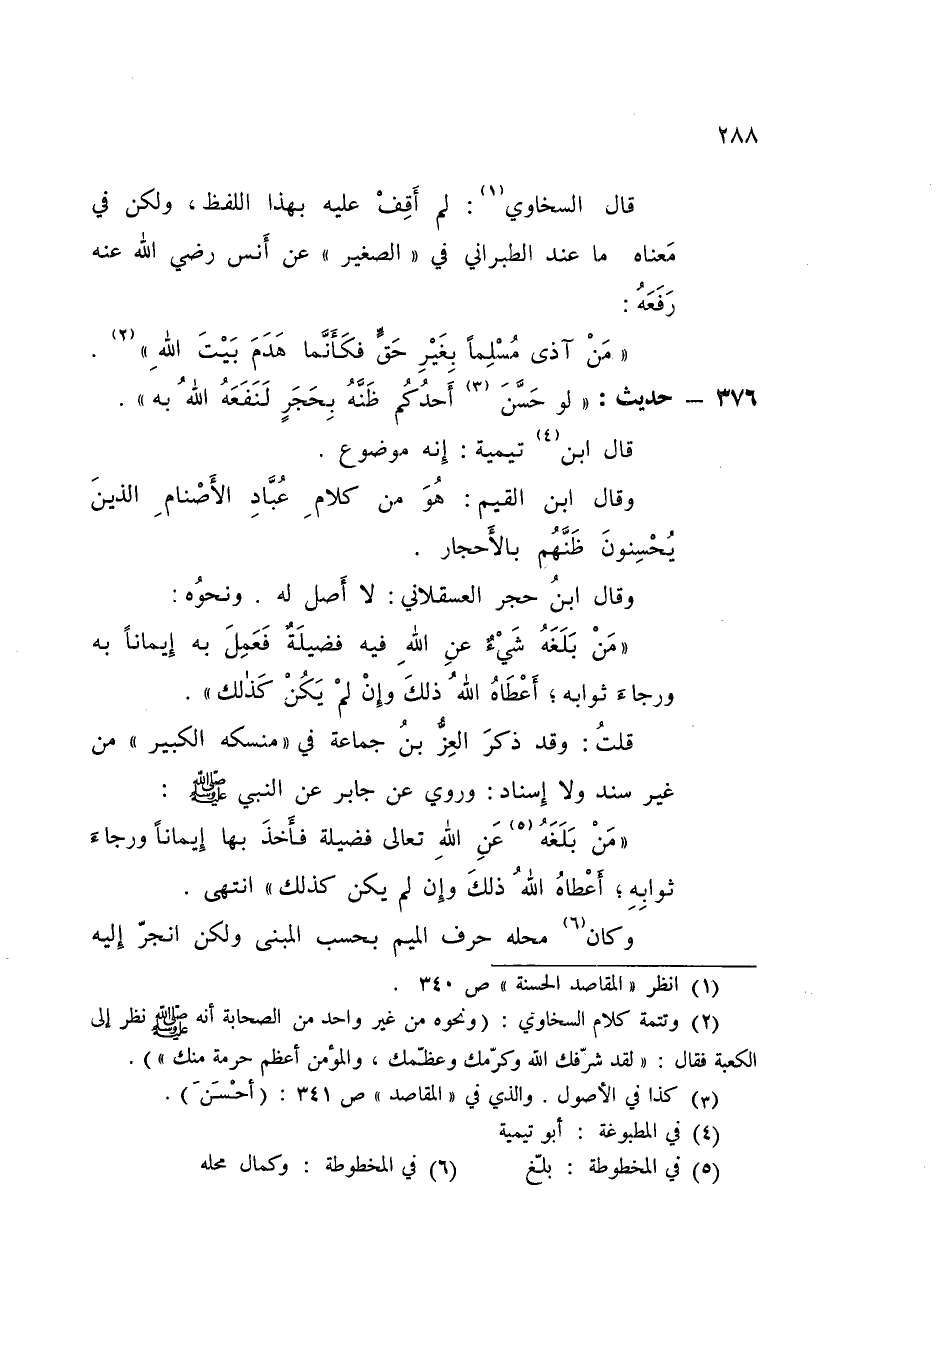 ٢٨٨
قال السخاوي(١) : لم أَقِفْ عليه بهذا اللفظ ، ولكن في
مَعناه ما عند الطبراني في « الصغير » عن أَنس رضي الله عنه
رَفَعَهُ :
« مَنْ آذى مُسْلِماً بِغَيْرِ حَقٍّ فكَأَنَّما هَدَمَ بَيْتَ اللهِ »(٢) .
٣٧٦ – حديث : « لو حَسَّنَ (٣) أَحدُكُم ظَنَّهُ بِحَجَرٍ لَنَفَعَهُ اللهُ به » .
قال ابن(٤) تيمية : إنه موضوع .
وقال ابن القيم : هُوَ من كلامِ عُبَّادِ الأَصْنامِ الذينَ
يُحْسِنونَ ظَنَّهُم بالأَحجار .
وقال ابنُ حجر العسقلاني : لا أَصل له . ونحوُه :
« مَنْ بَلَغَهُ شَيْءٌ عنِ اللهِ فيه فضيلَةٌ فَعَمِلَ به إيماناً به
ورجاءَ ثوابه ؛ أَعْطَاهُ اللهُ ذلكَ وإنْ لمْ يَكُنْ كَذٰلك » .
قلتُ : وقد ذكرَ العِزُّ بنُ جماعة في « منسكه الكبير » من
غير سند ولا إسناد : وروي عن جابر عن النبي ﷺ :
« مَنْ بَلَغَهُ(٥) عَنِ اللهِ تعالى فضيلة فأَخذَ بها إيماناً ورجاءَ
ثوابِهِ ؛ أَعْطاهُ اللهُ ذلكَ وإن لم يكن كذلك » انتهى .
وكان(٦) محله حرف الميم بحسب المبنى ولكن انجرّ إليه
(١) انظر « المقاصد الحسنة » ص ٣٤٠ .
(٢) وتتمة كلام السخاوي : ( ونحوه من غير واحد من الصحابة أنه ﷺ نظر إلى
الكعبة فقال : « لقد شرّفك الله وكرّمك وعظّمك ، والمؤمن أعظم حرمة منك » ) .
(٣) كذا في الأصول . والذي في « المقاصد » ص ٣٤١ : ( أحْسَنَ ) .
(٤) في المطبوعة : أبو تيمية
(٥) في المخطوطة : بلّغ (٦) في المخطوطة : وكمال محله